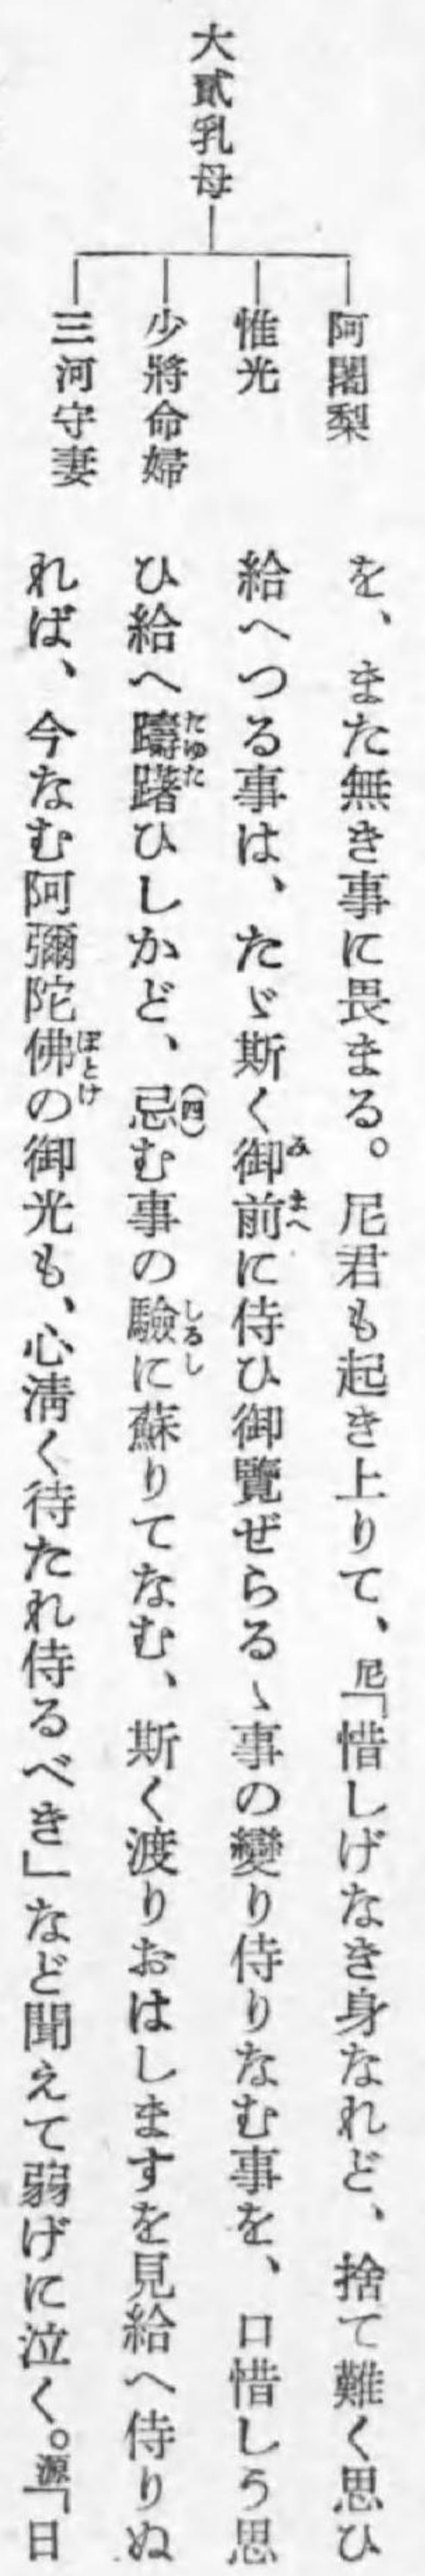 大貳乳母
阿闍梨
惟光
少將命婦
三河守妻
を、また無き事に畏まる。尼君も起き上りて、尼「惜しげなき身なれど、捨て難く思ひ
給へつる事は、たゞ斯く御前に侍ひ御覽ぜらるゝ事の變り侍りなむ事を、口惜しう思
ひ給へ躊躇ひしかど、忌む事の驗に蘇りてなむ、斯く渡りおはしますを見給へ侍りぬ
れば、今なむ阿彌陀佛の御光も、心淸く待たれ侍るべき」など聞えて弱げに泣く。源「日
み まへ
たゆた
(四)
しるし
ぼとけ